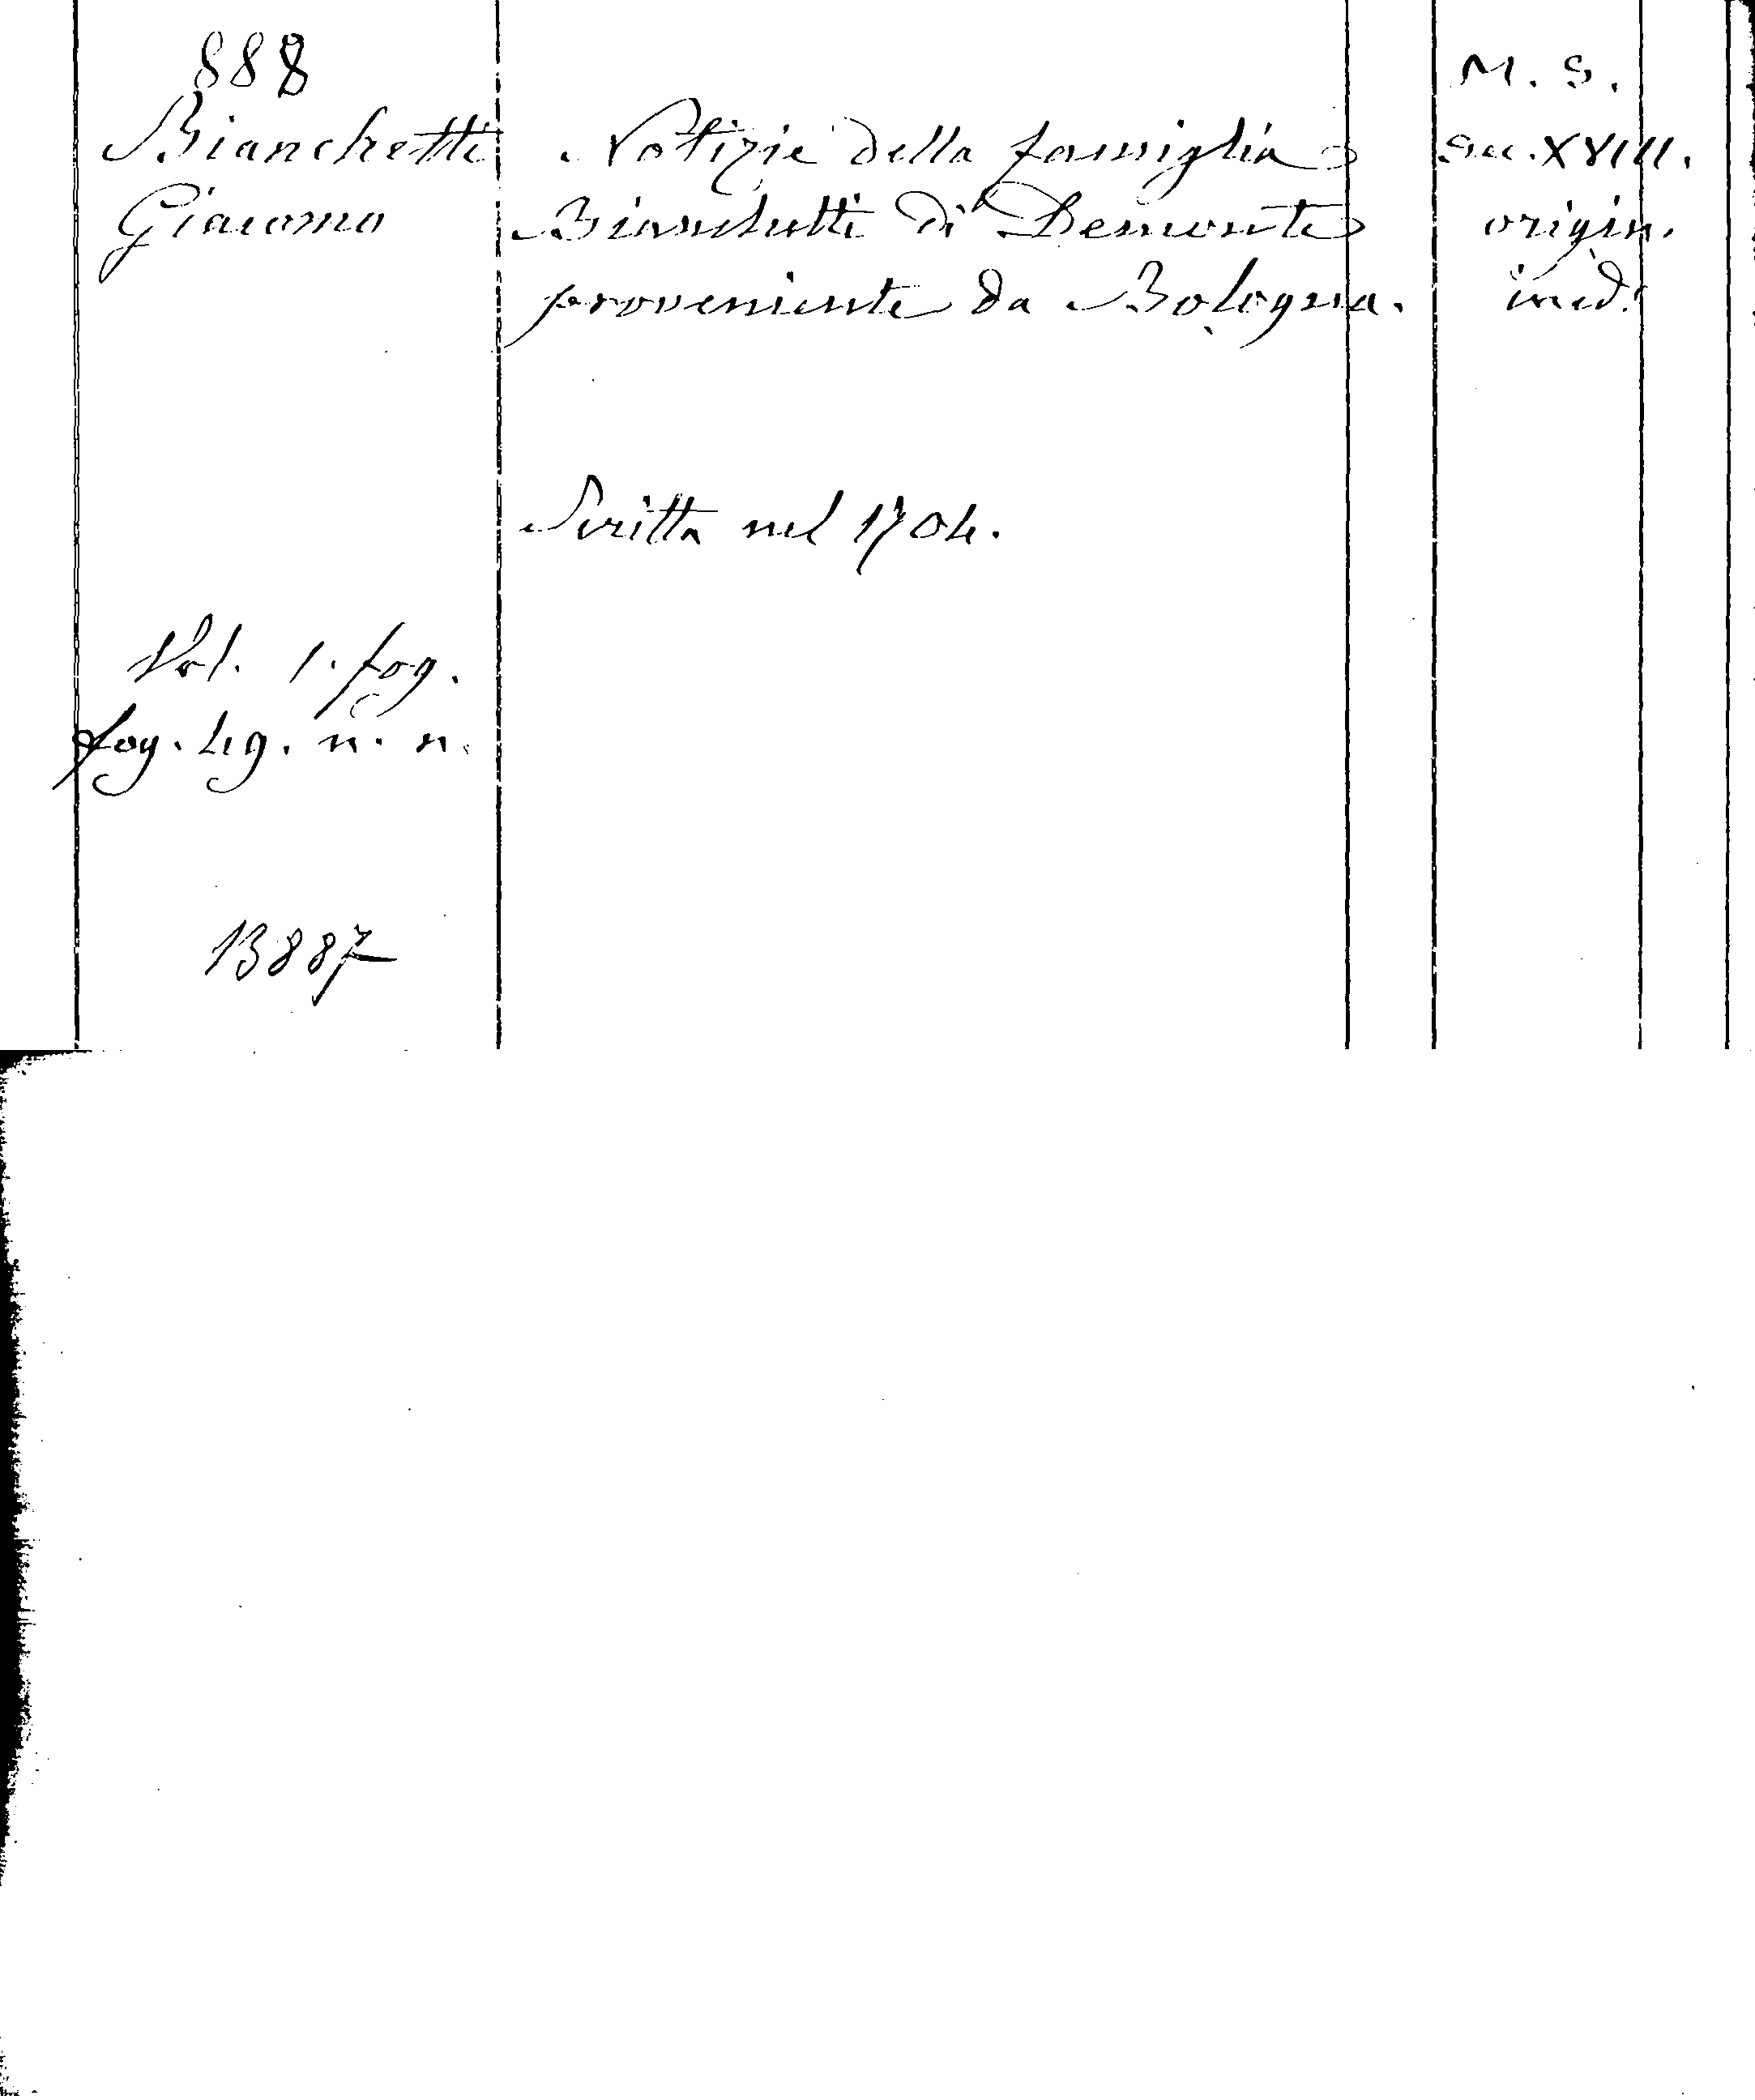 888
Bianchetti
Giacomo
Notizie della famiglia
Bianchetti di Demonte
proveniente da Bologna.
Scritta nel 1704.
M. S.
Sec. XVIII.
origin.
ined.
Vol. 1. fog.
fog. 49. n. n.
13887